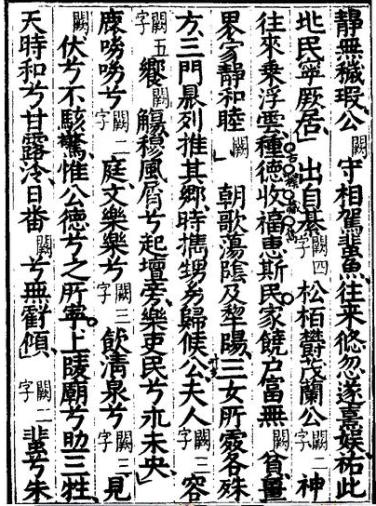 靜無穢瑕公闕守相駕蜚魚往來倏忽遂熹娛祐此
民寧厥居出自綦闕四字松柏鬱茂蘭公闕二字神
往來乘浮雲種德收福惠斯民家饒戶富無闕貧畺
界家靜和睦闕朝歌蕩陰及犂陽三女所處各殊
方三門鼎列推其鄉時攜甥舅歸候公夫人闕三字容
闕五字饗闕觴穆風屑兮起壇旁樂吏民兮永未央
鹿呦呦兮闕二字庭文樂樂兮闕三字飲清泉兮闕三見
闕伏兮不駭驚惟公德兮之所寧上陵廟兮助三牲
天時和兮甘露泠日番闕兮無虧傾闕二字蜚兮朱